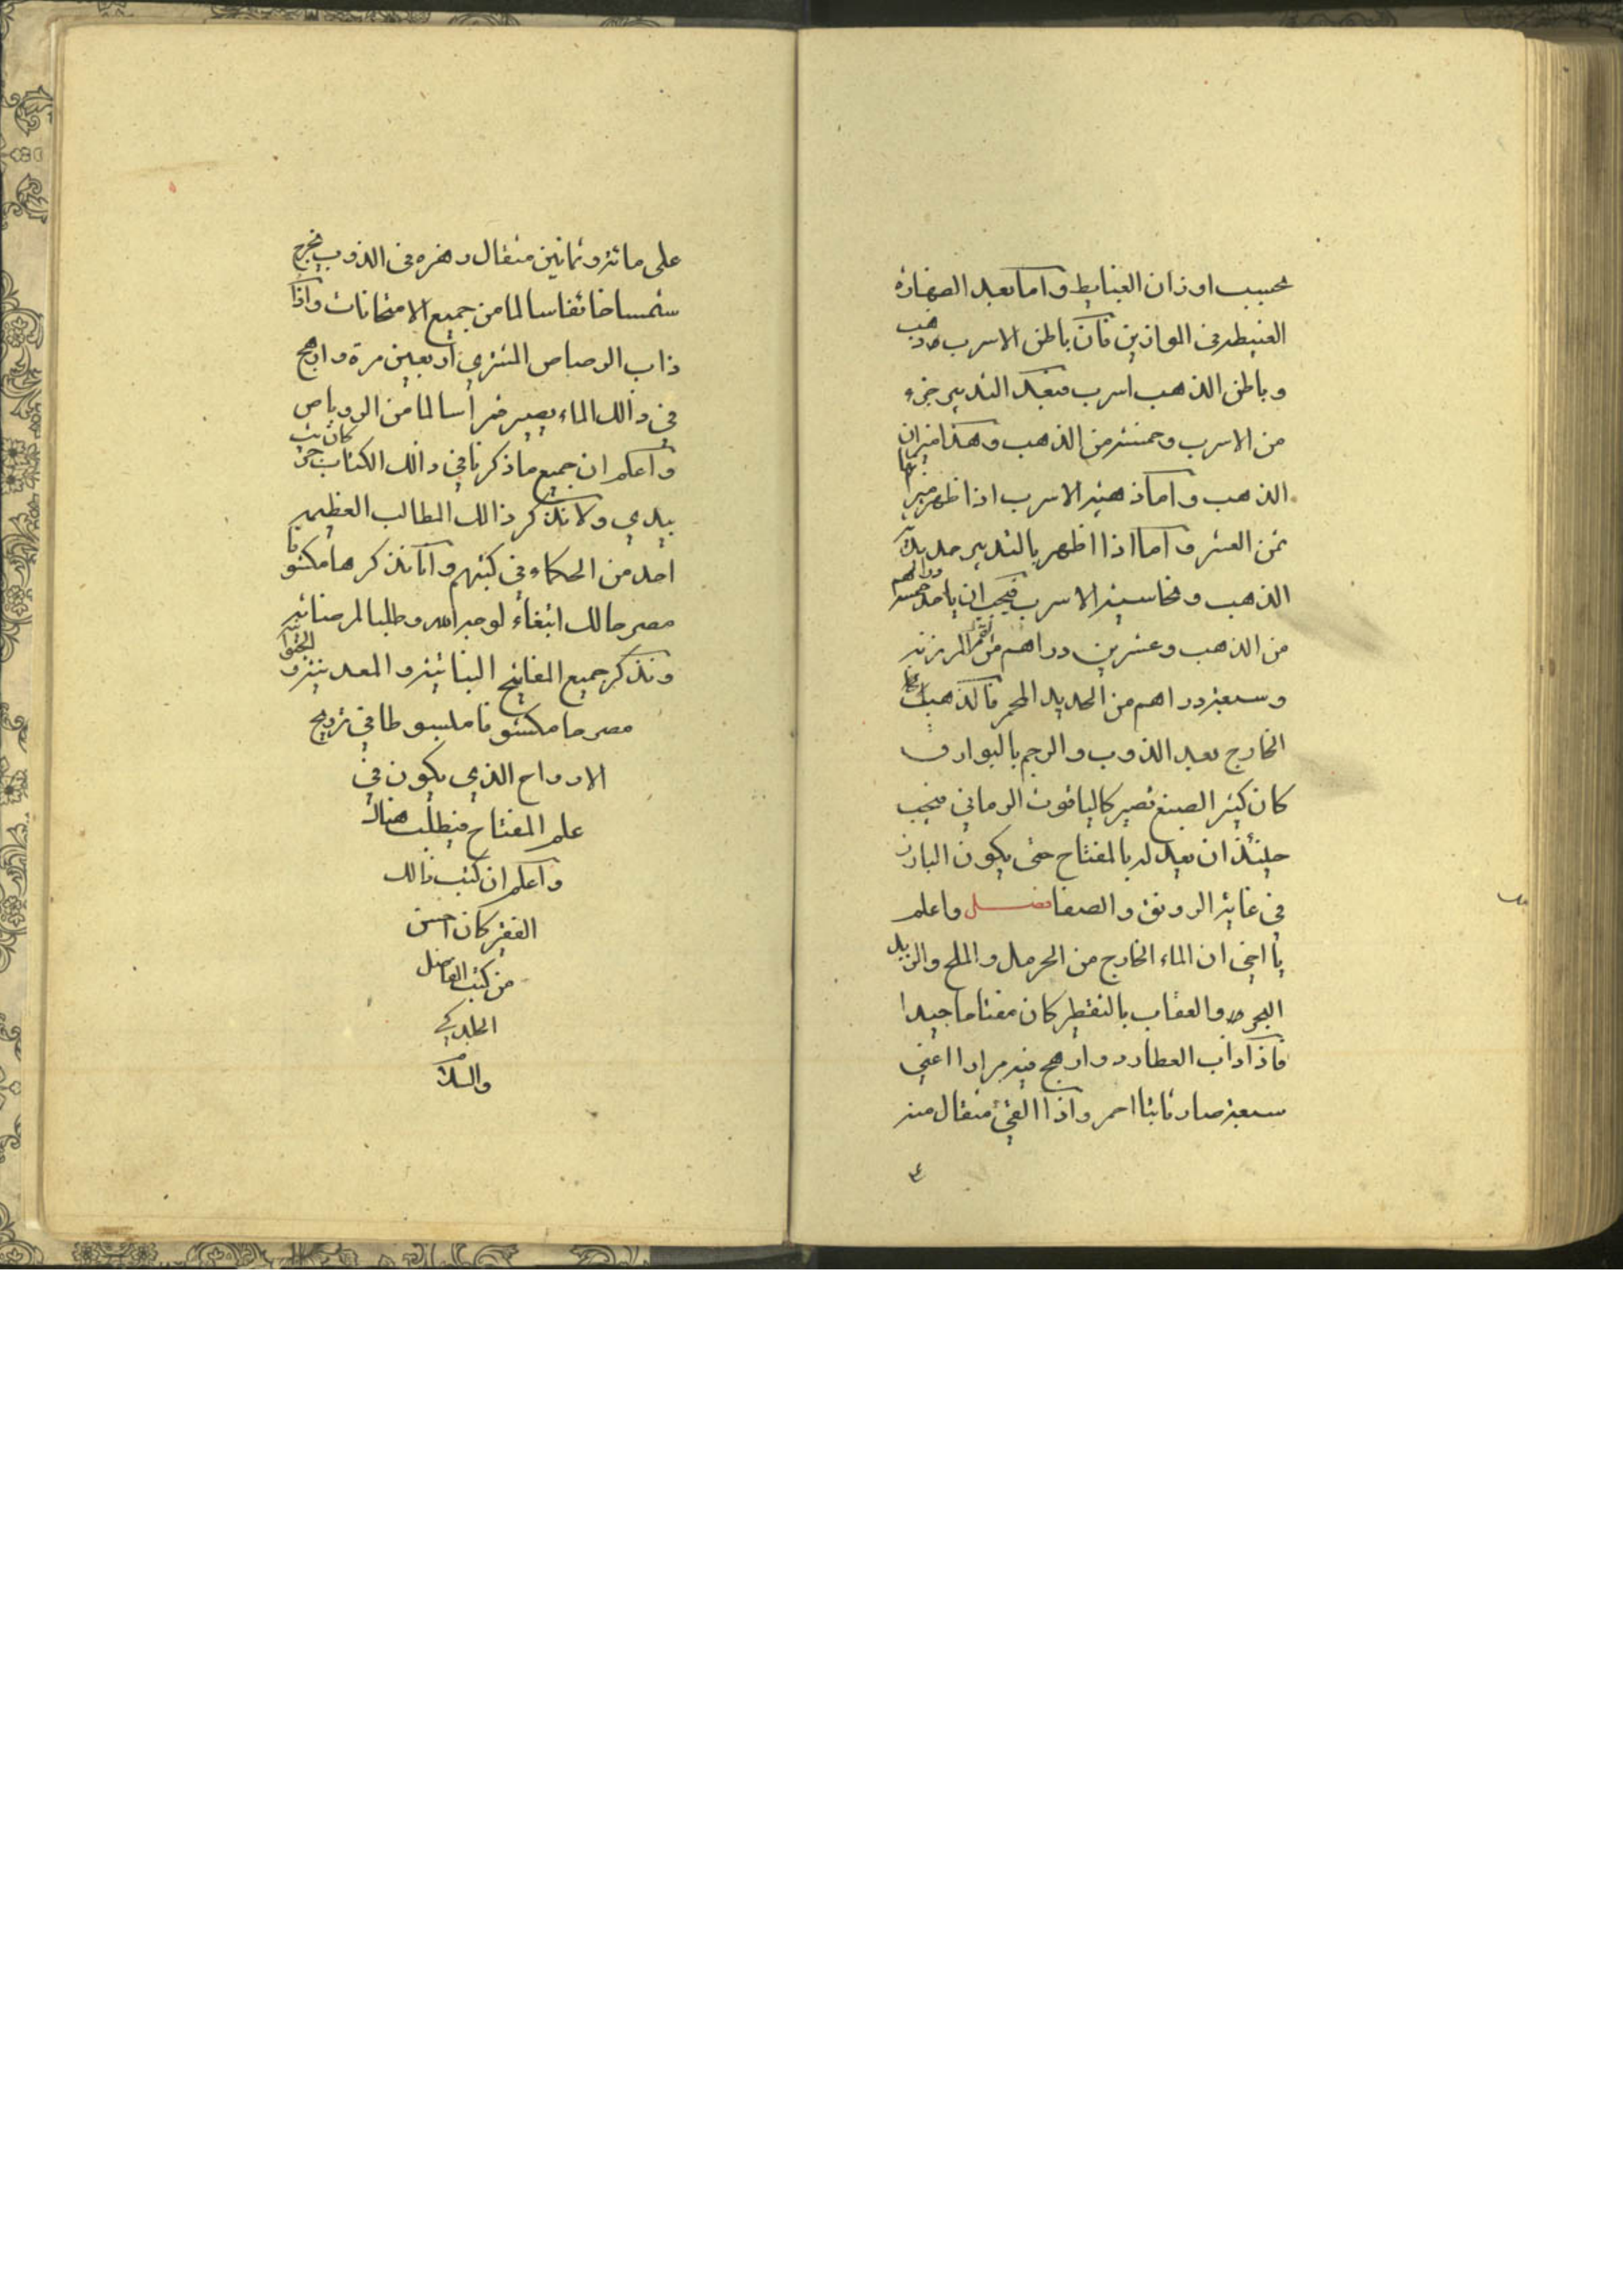 بحسب اوزان الغبايط واما بعد الصفارة
الغبيطه في الموازين فان باطن الاسرب ذهب
وباطن الذهب اسرب فبعد التدبير جزء
من الاسرب وخمسة من الذهب وهكذا ميزان
الذهب واما ذهبية الاسرب اذا ظهر ميزانها
ثمن العشر واما اذا اظهر بالتدبير حديدية
الذهب ونحاسية الاسرب فيجب ان ياخذ خمسة دراهم
من الذهب وعشرين دراهم من القمر المرزنة
وسبعة دراهم من الحديد المحمر فالذهب
الخارج بعد الذوب والرجم بالبوارق
كان كثير الصبغ تصير كالياقوت الرماني فيجب
حينئذ ان يعدله بالمفتاح حتى يكون البارز
في غاية الرونق والصفا فصل واعلم
يا اخي ان الماء الخارج من الحرمل والملح والزبد
البحر والعقاب بالتقطير كان مفتاحا جيدا
فاذا اذاب العطارد وارهج فيه مرارا اعني
سبعة صار ثابتا احمر واذا القئ مثقال منه
٤
على مائة وثمانين مثقال زهره في الذوب يخرج
شمسا خائفا سالما من جميع الامتحانات واذا
ذاب الرصاص المشتري اربعين مرة وارهج
في ذالك الماء يصير قمرا سالما من الروباص
واعلم ان جميع ما ذكرنا في ذالك الكتاب كان
بيدي ولا نذكر ذالك المطالب العظيمه
احد من الحكماء في كتبهم وانا نذكرها مكشوفا
مصرحا لك ابتغاء لوجه الله وطلبا لمرضاته
ونذكر جميع المفاتيح النباتية والمعدنية و
مصرحا مكشوفا مبسوطا في تزويج
الارواح الذي يكون في
علم المفتاح فيطلب هناك
واعلم ان كتب ذالك
الفقير كان احسن
من كتب الفاضل
الجلدكي
والسلام